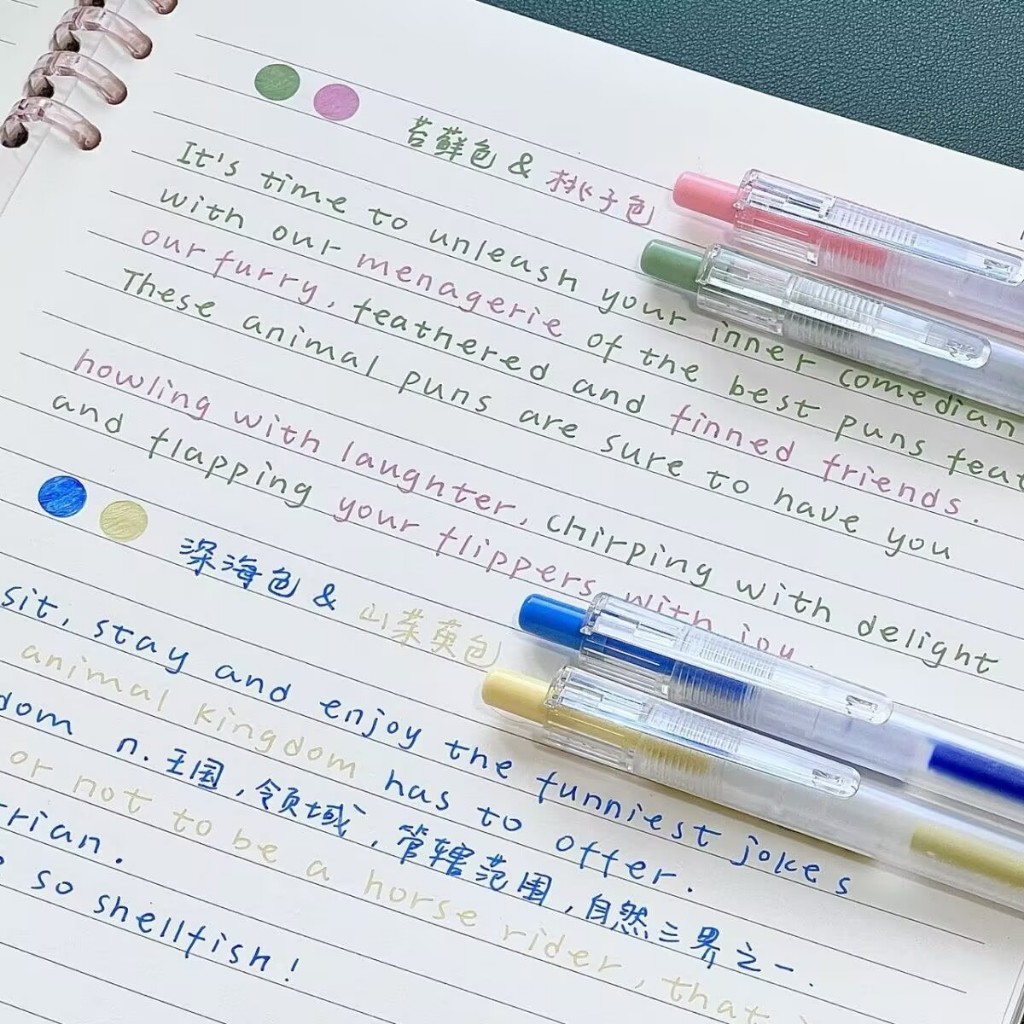 苔藓色 & 桃子色
It's time to unleash your inner comedian
with our menagerie of the best puns feat
our furry, feathered and finned friends.
These animal puns are sure to have you
howling with laughter, chirping with delight
and flapping your flippers with joy.
深海色 & 山茱萸色
sit, stay and enjoy the funniest jokes
animal kingdom has to offer.
dom n. 王国,领域,管辖范围,自然三界之一.
or not to be a horse rider, that
rian.
so shellfish!